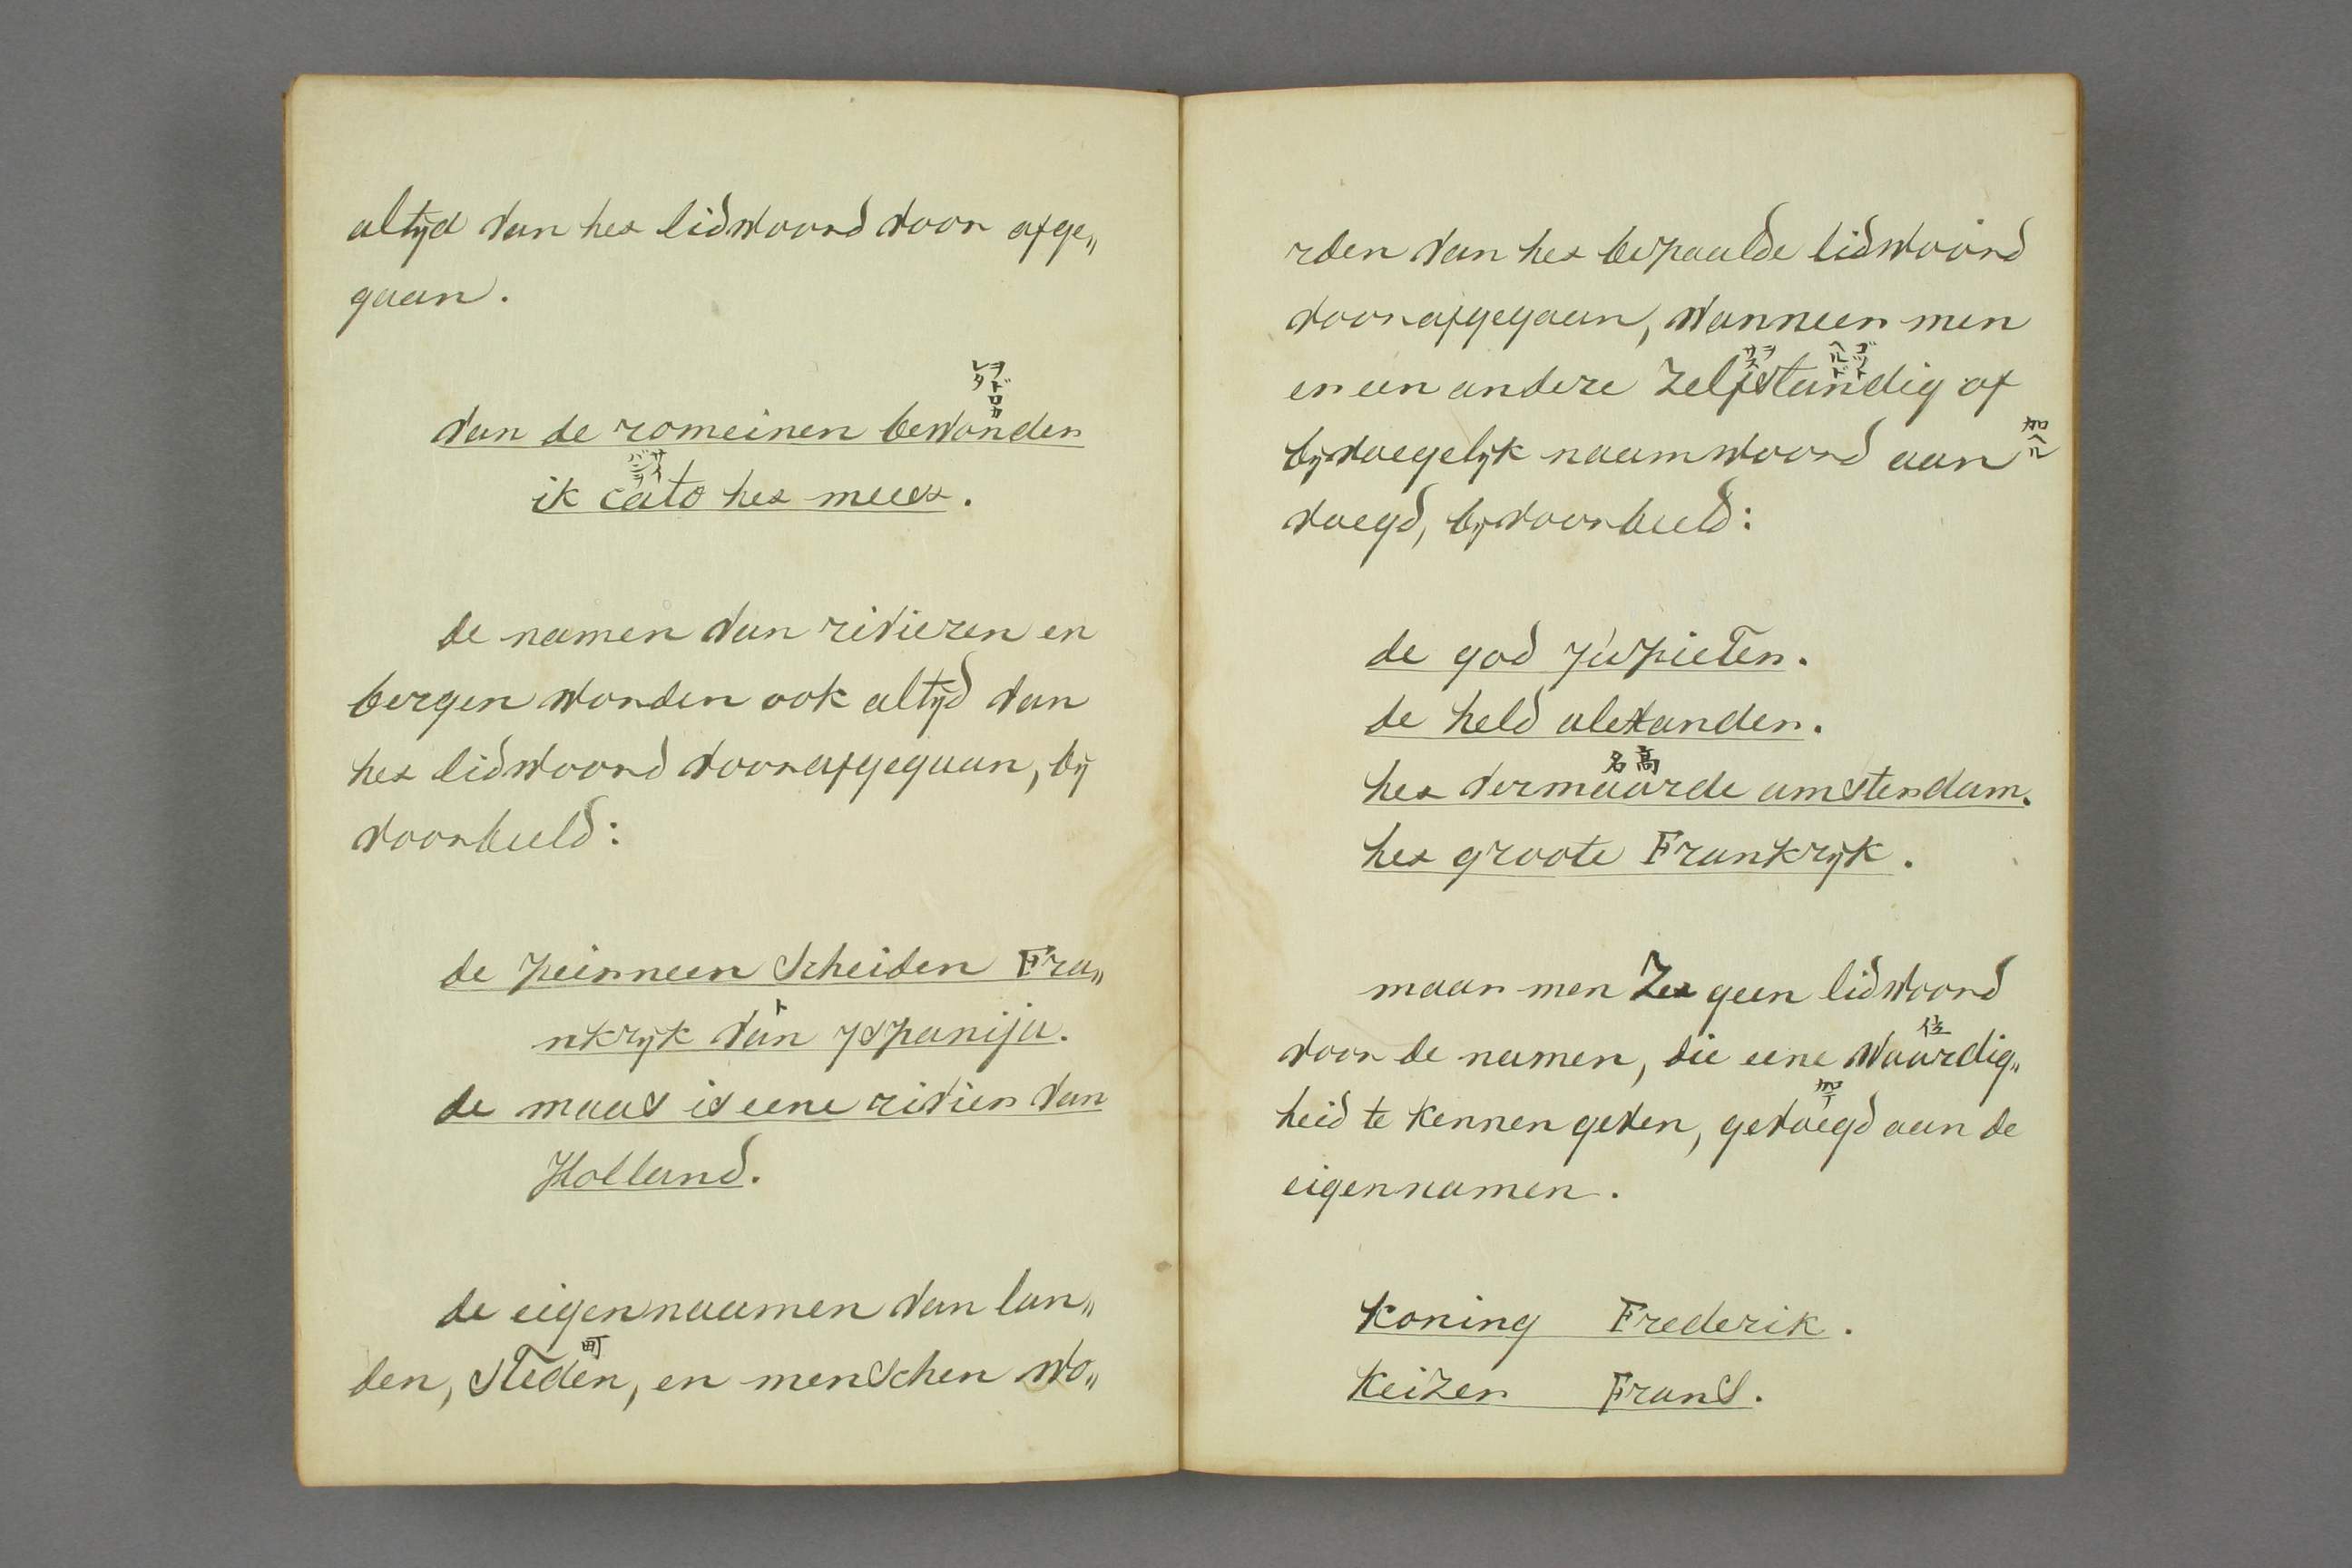 altijd van het lidwoord voor afge„
gaan.
ヲドロカ
レタ
van de romeinen bewonder
サイ
バンヲ
ik cato het meest.
de namen van rivieren en
bergen worden ook altijd van
het lidwoord voorafgegaan, bij
voorbeeld:
de peirneen scheiden Fra„
ト
nkrijk van spanija.
de maas is eene rivier van
Holland.
de eigennaamen van lan„
町
den, steden, en menschen wo„
rden van het bepaalde lidwoord
voorafgegaan, wanneer men
ヲサス ゴット ヘルド
er een andere zelfstandig of
加ヘル
bijvoegelijk naamwoord aan
voegd, bij voorbeeld:
de god jupieter.
de held alexander.
名高
het vermaarde amsterdam.
het groote Frankrijk.
maar men zet geen lidwoord
位
voor de namen, die eene waardig„
加テ
heid te kennen geven, gevoegd aan de
eigennamen.
Koning Frederik.
Keizer Frans.